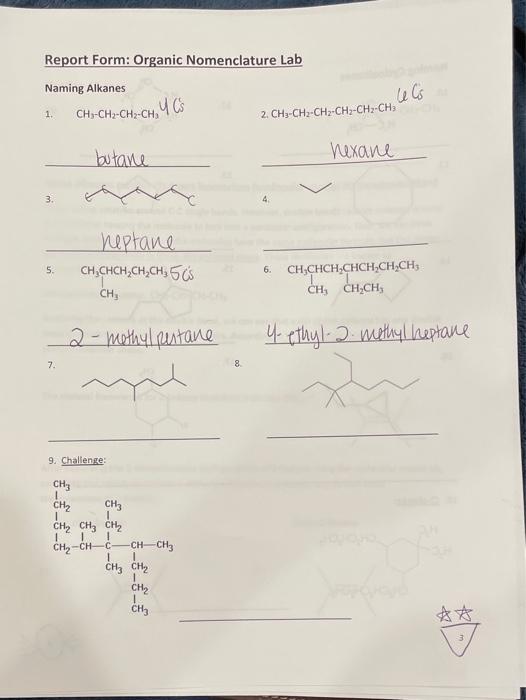 Report Form: Organic Nomenclature Lab
Naming Alkanes
1. CH₃-CH₂-CH₂-CH₃ 4 C's
2. CH₃-CH₂-CH₂-CH₂-CH₂-CH₃ 6 C's
butane
hexane
3.
4.
heptane
5. CH₃CHCH₂CH₂CH₃ 5 C's
CH₃
6. CH₃CHCH₂CHCH₂CH₂CH₃
CH₃ CH₂CH₃
2-methyl pentane
4-ethyl-2-methyl heptane
7.
8.
9. Challenge:
CH₃
CH₂ CH₃
CH₂ CH₃ CH₂
CH₂-CH-C-CH-CH₃
CH₃ CH₂
CH₂
CH₃
3